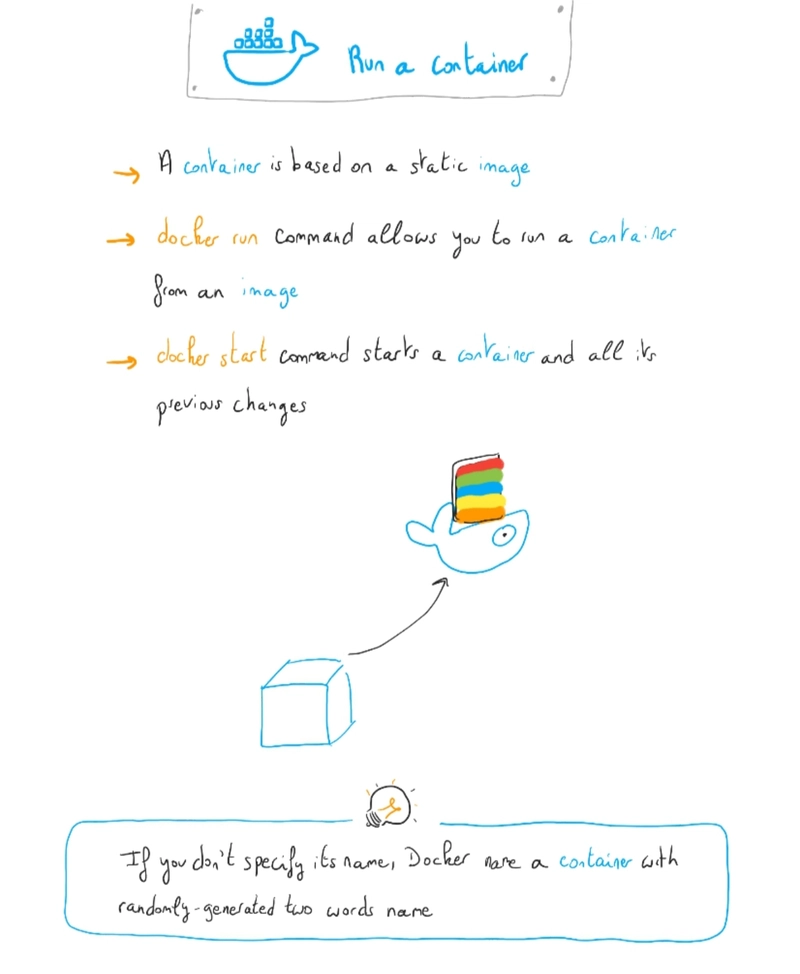 Run a container
A container is based on a static image
docker run command allows you to run a container
from an image
docker start command starts a container and all its
previous changes
If you don't specify its name, Docker name a container with
randomly-generated two words name